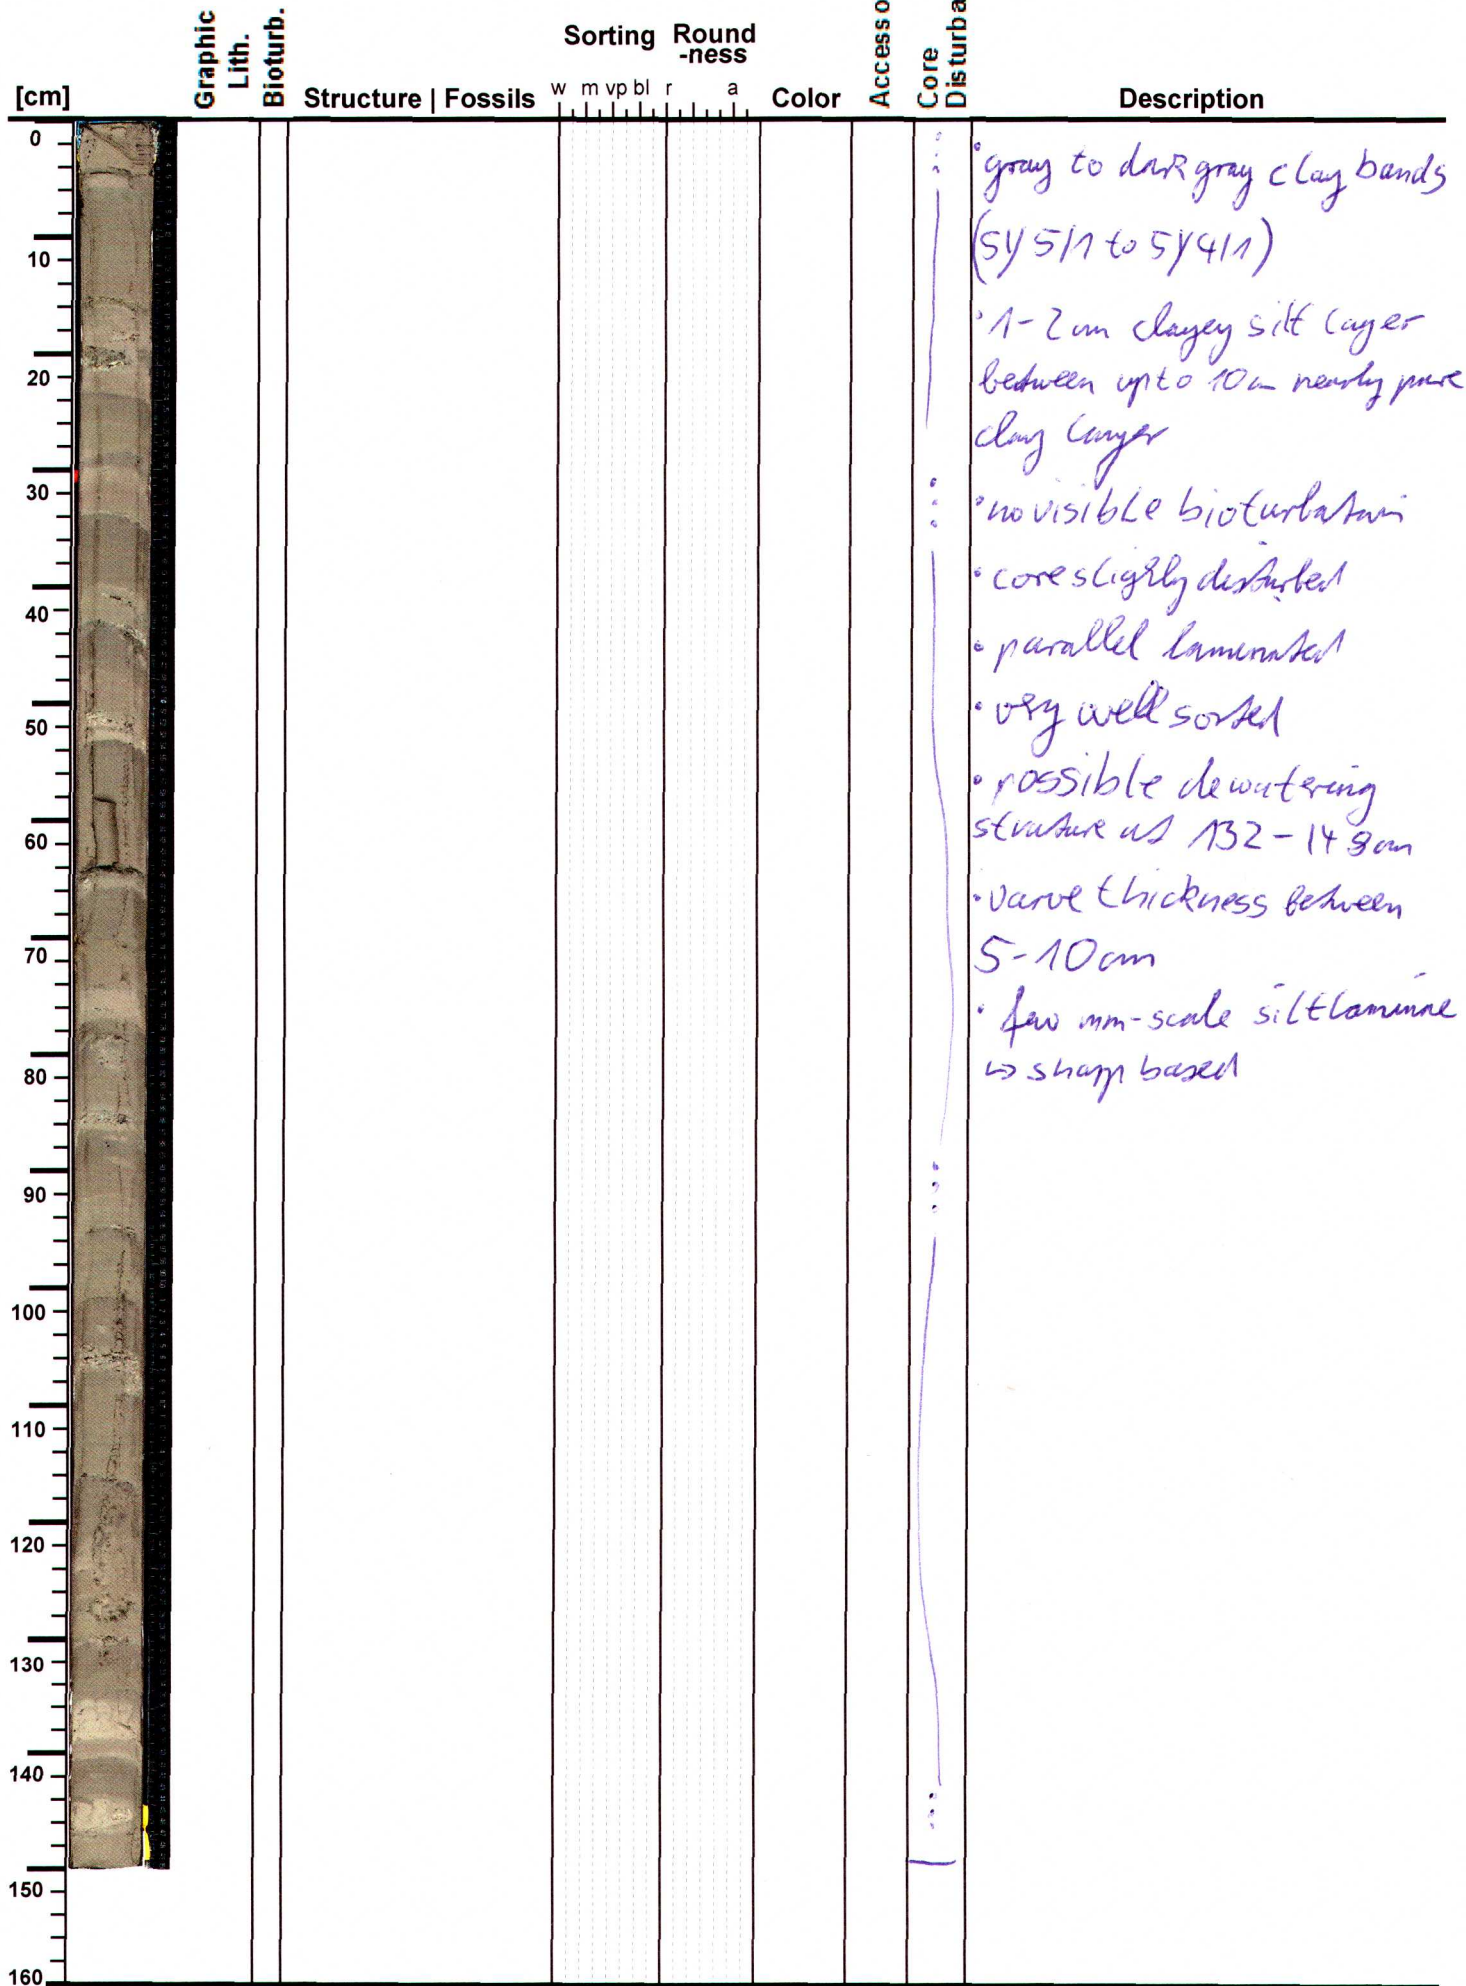 [cm]
Graphic
Lith.
Bioturb.
Structure | Fossils
Sorting
w m vp bl
Round
-ness
r a
Color
Accesso
Core
Disturba
Description
0
10
20
30
40
50
60
70
80
90
100
110
120
130
140
150
160
• gray to dark gray clay bands
(5Y 5/1 to 5Y 4/1)
• 1-2 cm clayey silt layer
between up to 10 cm nearly pure
clay layer
• no visible bioturbation
• core slighly disturbed
• parallel laminated
• very well sorted
• possible dewatering
struture at 132 - 148 cm
• varve thickness between
5-10 cm
• few mm-scale silt laminae
↳ sharp based